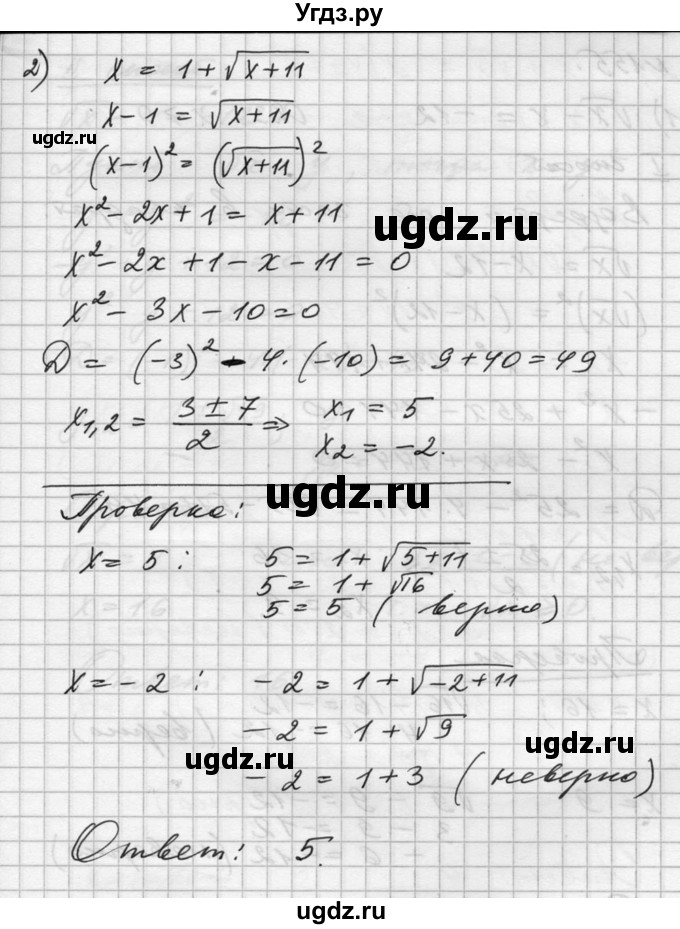 Угдз.ру
2) x = 1 + √(x+11)
x - 1 = √(x+11)
ugdz.ru
(x-1)² = (√(x+11))²
x² - 2x + 1 = x + 11
ugdz.ru
x² - 2x + 1 - x - 11 = 0
x² - 3x - 10 = 0
D = (-3)² - 4·(-10) = 9 + 40 = 49
x₁,₂ = (3 ± 7)/2 ⇒ x₁ = 5
x₂ = -2.
ugdz.ru
Проверка:
x = 5 : 5 = 1 + √(5+11)
5 = 1 + √16
5 = 5 (верно)
x = -2 : -2 = 1 + √(-2+11)
-2 = 1 + √9
ugdz.ru
ugdz.ru
-2 = 1 + 3 (неверно)
Ответ: 5.
ugdz.ru